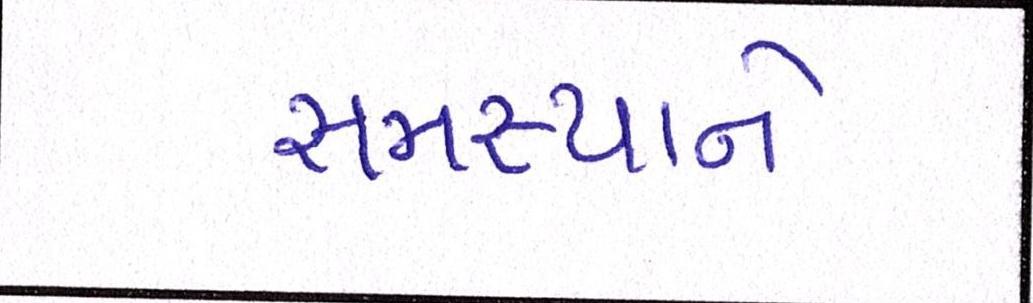 સમસ્યાને